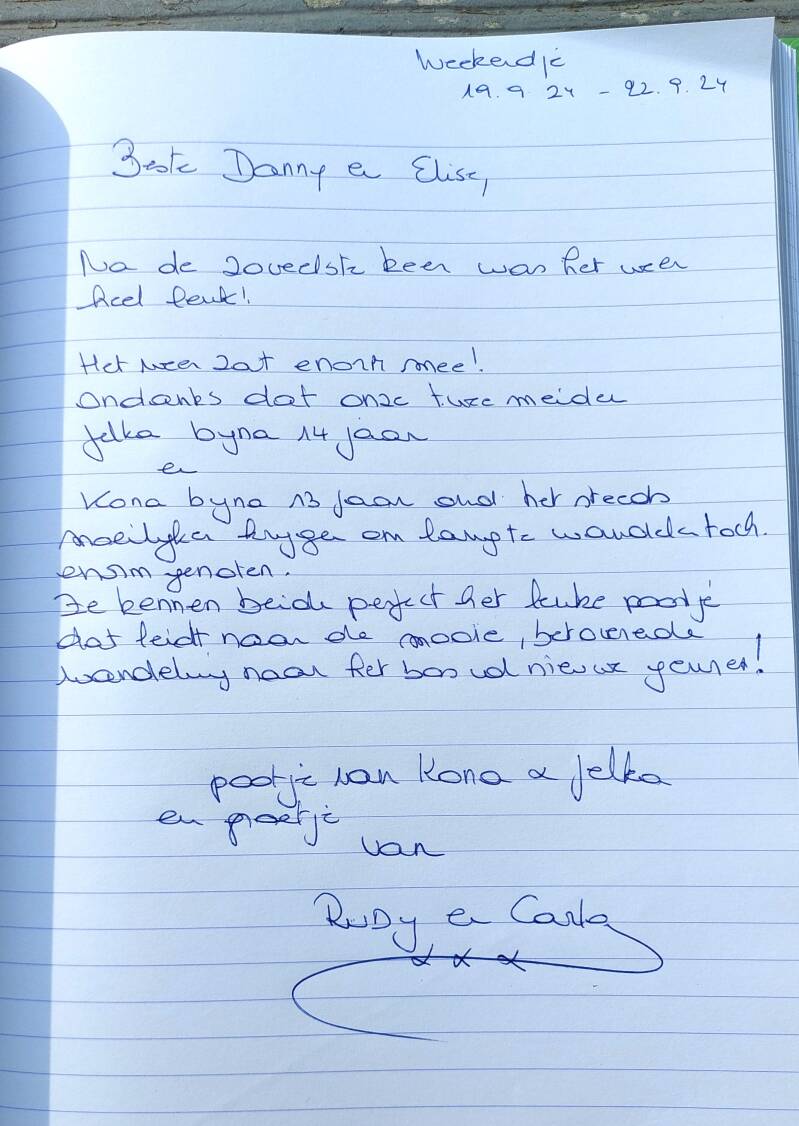 Weekendje
19.9.24 - 22.9.24
Beste Danny en Elise,
Na de zoveelste keer was het weer
heel leuk!
Het weer zat enorm mee!
Ondanks dat onze twee meiden
Jelka byna 14 jaar
en
Kona byna 13 jaar oud het steeds
moeilyker krygen om langte wandelen toch
enorm genoten.
Ze kennen beide perfect het leuke poortje
dat leidt naar de mooie, betoverende
wandeling naar het bos vd nieuwe geuren!
pootje van Kona & Jelka
en groetje
van
Rudy en Carla
x x x